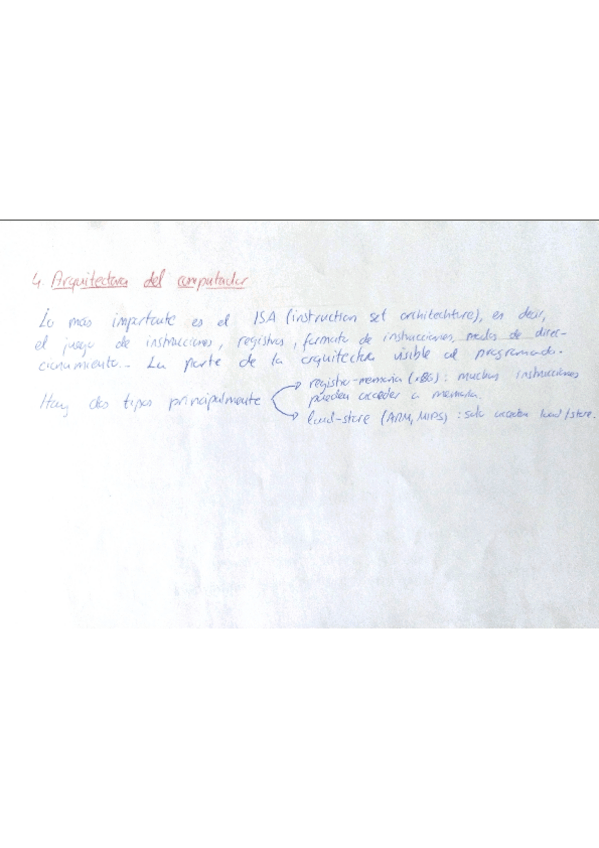 4. Arquitectura del computador
Lo más importante es el ISA (instruction set architechture), es decir,
el juego de instrucciones, registros, formato de instrucciones, modos de direc-
cionamiento... La parte de la arquitectura visible al programador.
Hay dos tipos principalmente
registro-memoria (x86): muchas instrucciones
pueden acceder a memoria.
load-store (ARM, MIPS): solo acceden load/store.